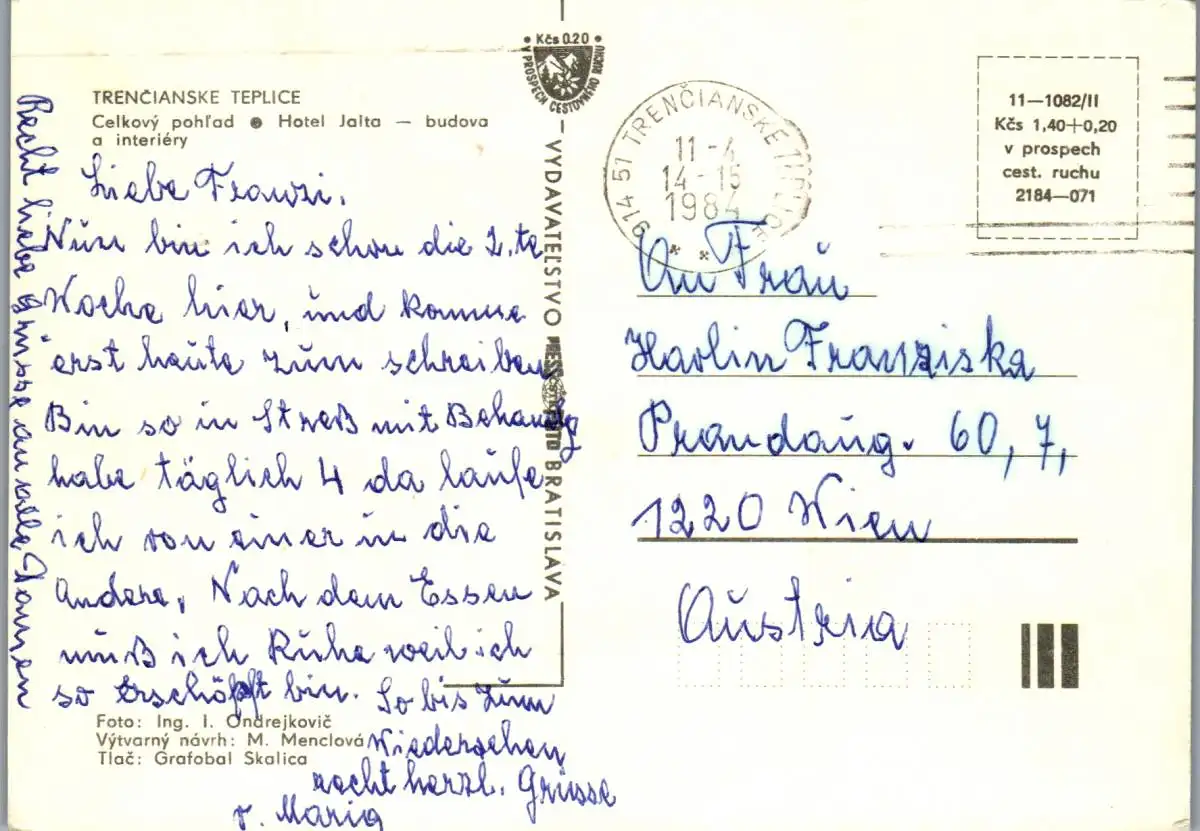 TRENČIANSKE TEPLICE
Celkový pohľad ● Hotel Jalta — budova
a interiéry
Liebe Franzi.
Nun bin ich schon die 2. te
Woche hier, und komme
erst heute zum schreiben
Bin so in Streß mit Behandlg
habe täglich 4 da laufe
ich von einer in die
Andere. Nach dem Essen
muß ich Ruhe weil ich
so erschöpft bin. So bis zum
Wiedersehen
recht herzl. Grüsse
v. Maria
Recht liebe Grüsse an alle Damen
Foto: Ing. I. Ondrejkovič
Výtvarný návrh: M. Menclová
Tlač: Grafobal Skalica
• Kčs 0.20 •
V PROSPECH CESTOVNÉHO RUCHU
VYDAVATEĽSTVO PRESSFOTO BRATISLAVA
914 51 TRENČIANSKE TEPLICE
11-4
14-15
1984
11—1082/II
Kčs 1,40+0,20
v prospech
cest. ruchu
2184—071
An Frau
Havlin Franziska
Prandaug. 60, 7,
1220 Wien
Austria